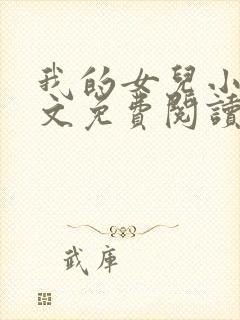 我的女兒小
文免費閱讀
武庫